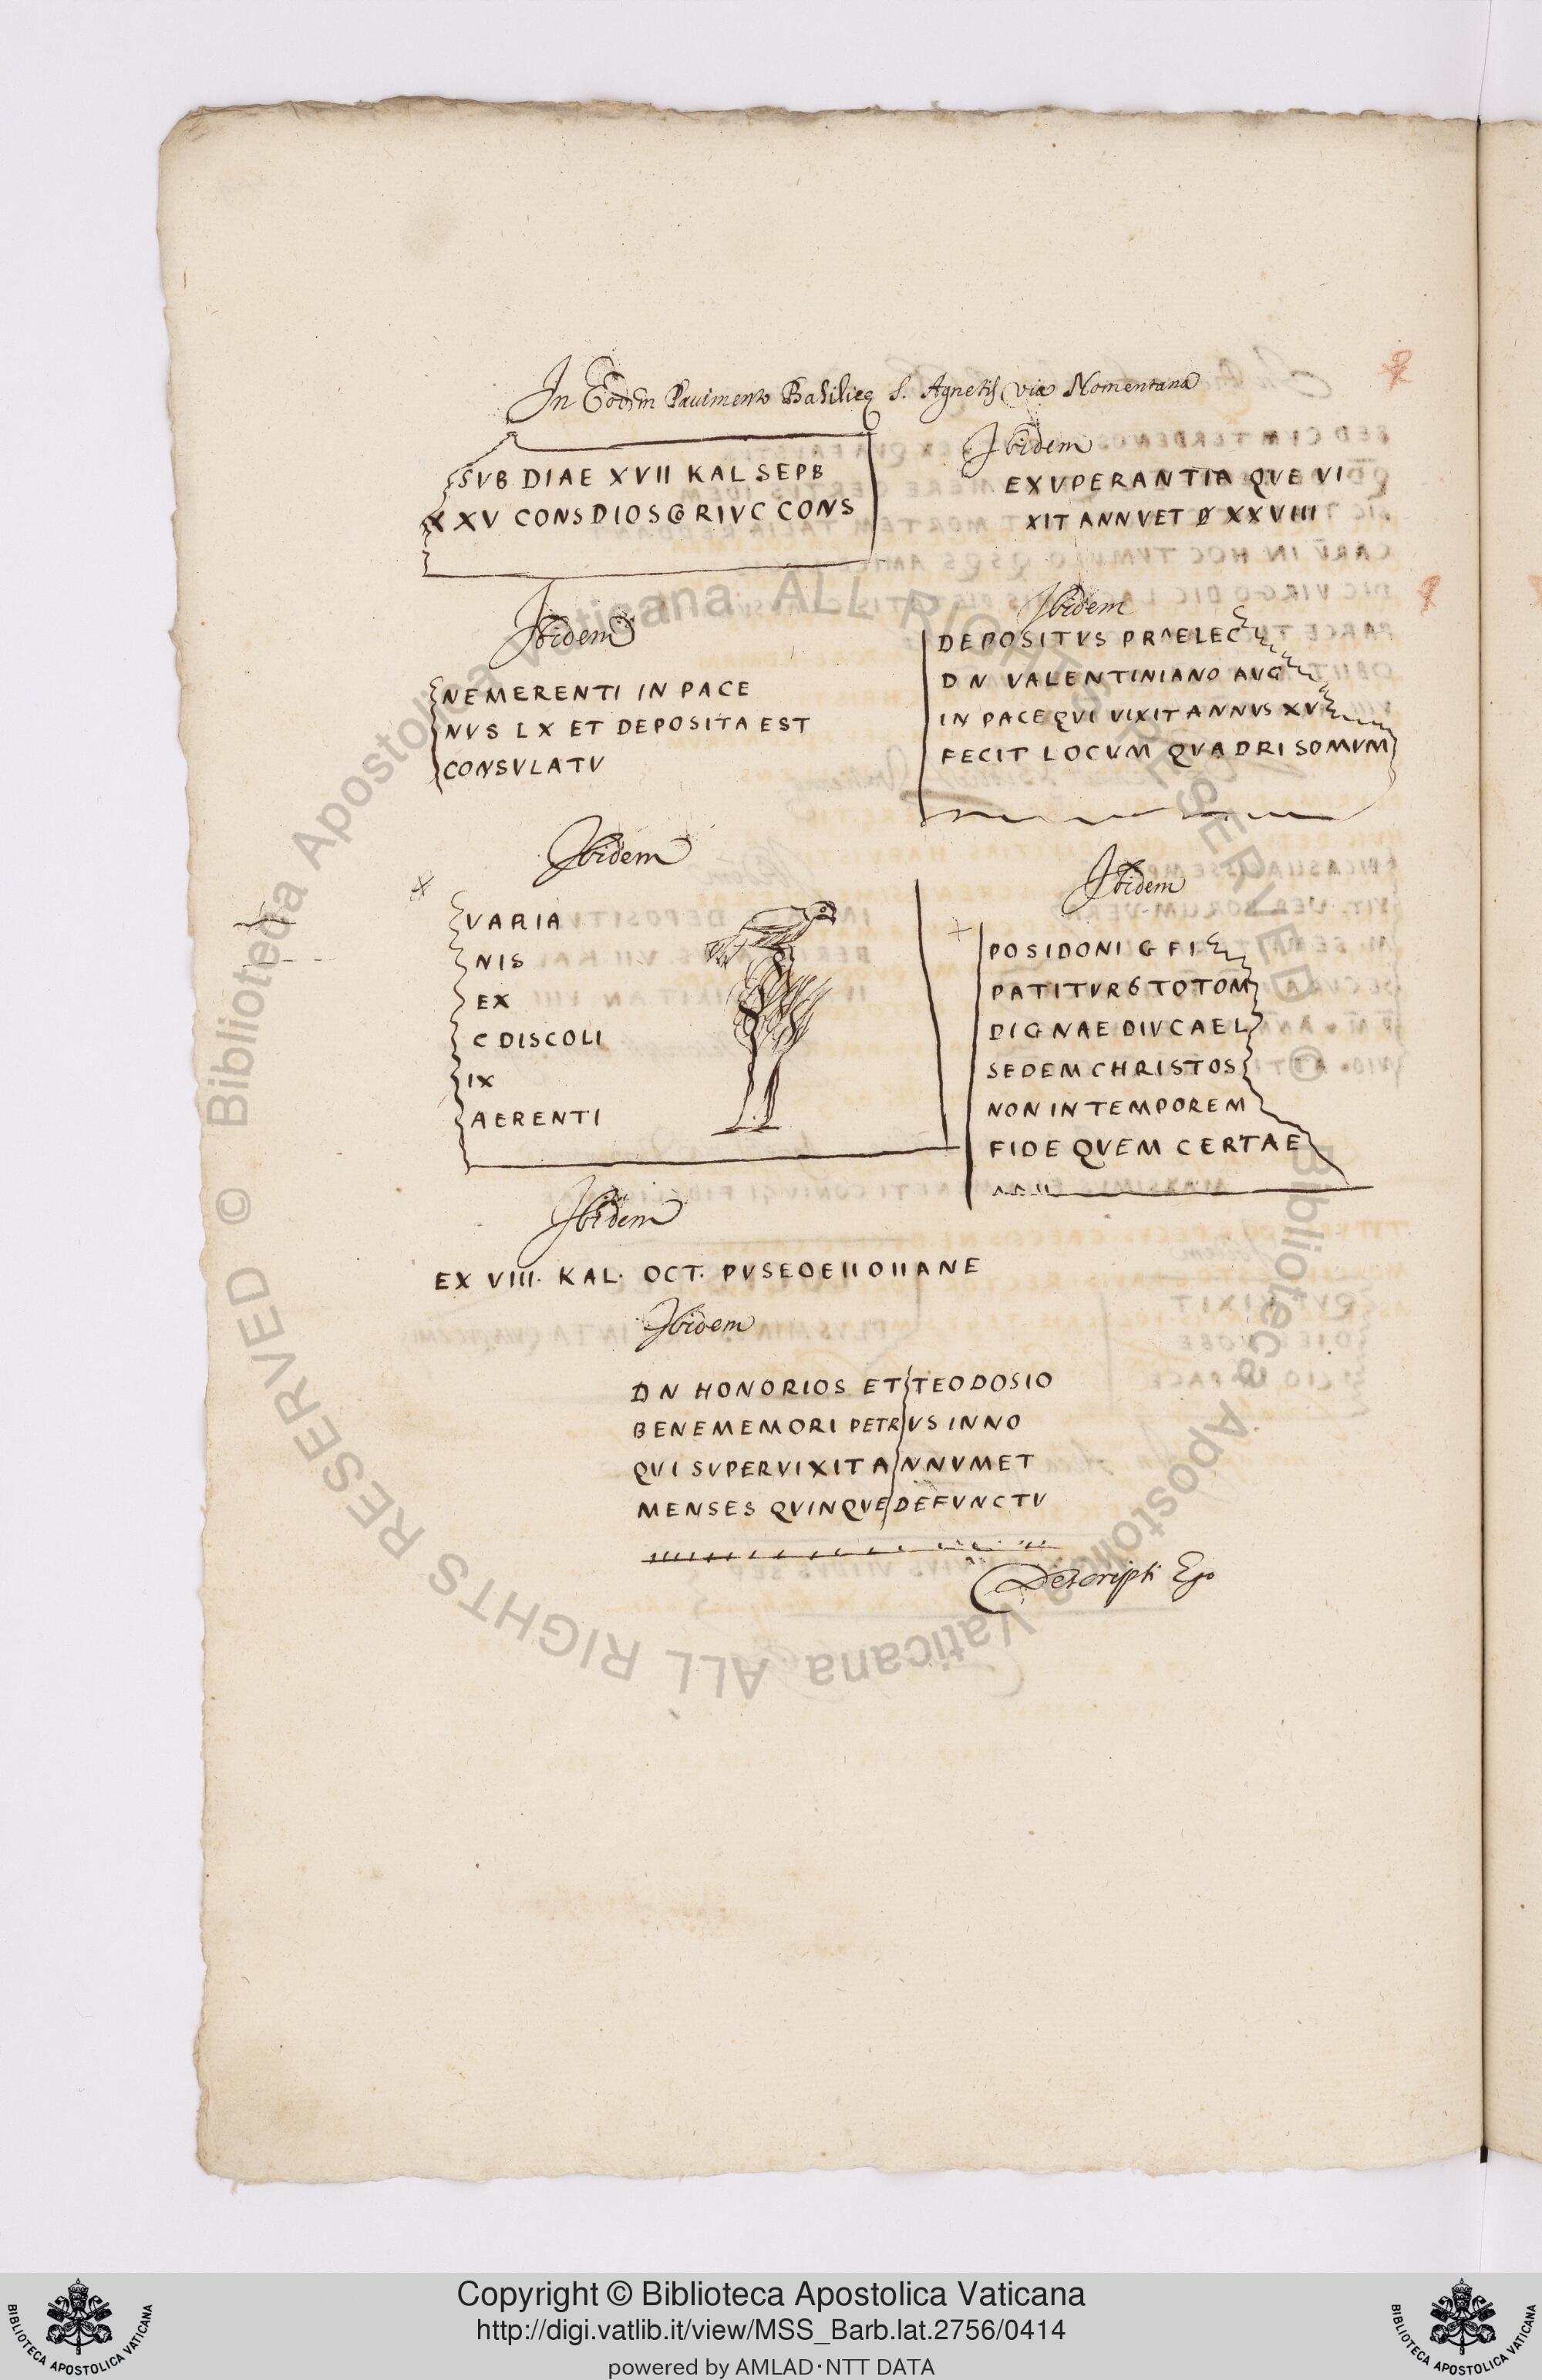 In Eodem Pauimento Basilicę S. Agnetis via Nomentana
SVB DIAE XVII KAL SEPB
XXV CONS DIOSCORIVC CONS
Ibidem
EXVPERANTIA QVE VI
XIT ANNVET D XXVIII
Ibidem
NEMERENTI IN PACE
NVS LX ET DEPOSITA EST
CONSVLATV
Ibidem
DEPOSITVS PRAELEC
DN VALENTINIANO AVG
IN PACE QVI VIXIT ANNVS XV
FECIT LOCVM QVADRISOMVM
Ibidem
VARIA
NIS
EX
C DISCOLI
IX
AERENTI
Ibidem
POSIDONI G FI
PATITVR 6 TOTOM
DIGNAE DIVCAEL
SEDEM CHRISTOS
NON IN TEMPOREM
FIDE QVEM CERTAE
Ibidem
EX VIII. KAL. OCT. PVSEOEIIOIIANE
Ibidem
DN HONORIOS ET TEODOSIO
BENEMEMORI PETRVS INNO
QVI SVPERVIXIT ANNVMET
MENSES QVINQVE DEFVNCTV
Descripti Ego
Copyright © Biblioteca Apostolica Vaticana
http://digi.vatlib.it/view/MSS_Barb.lat.2756/0414
powered by AMLAD·NTT DATA
BIBLIOTECA APOSTOLICA VATICANA
BIBLIOTECA APOSTOLICA VATICANA
© Biblioteca Apostolica Vaticana ALL RIGHTS RESERVED © Biblioteca Apostolica Vaticana ALL RIGHTS RESERVED